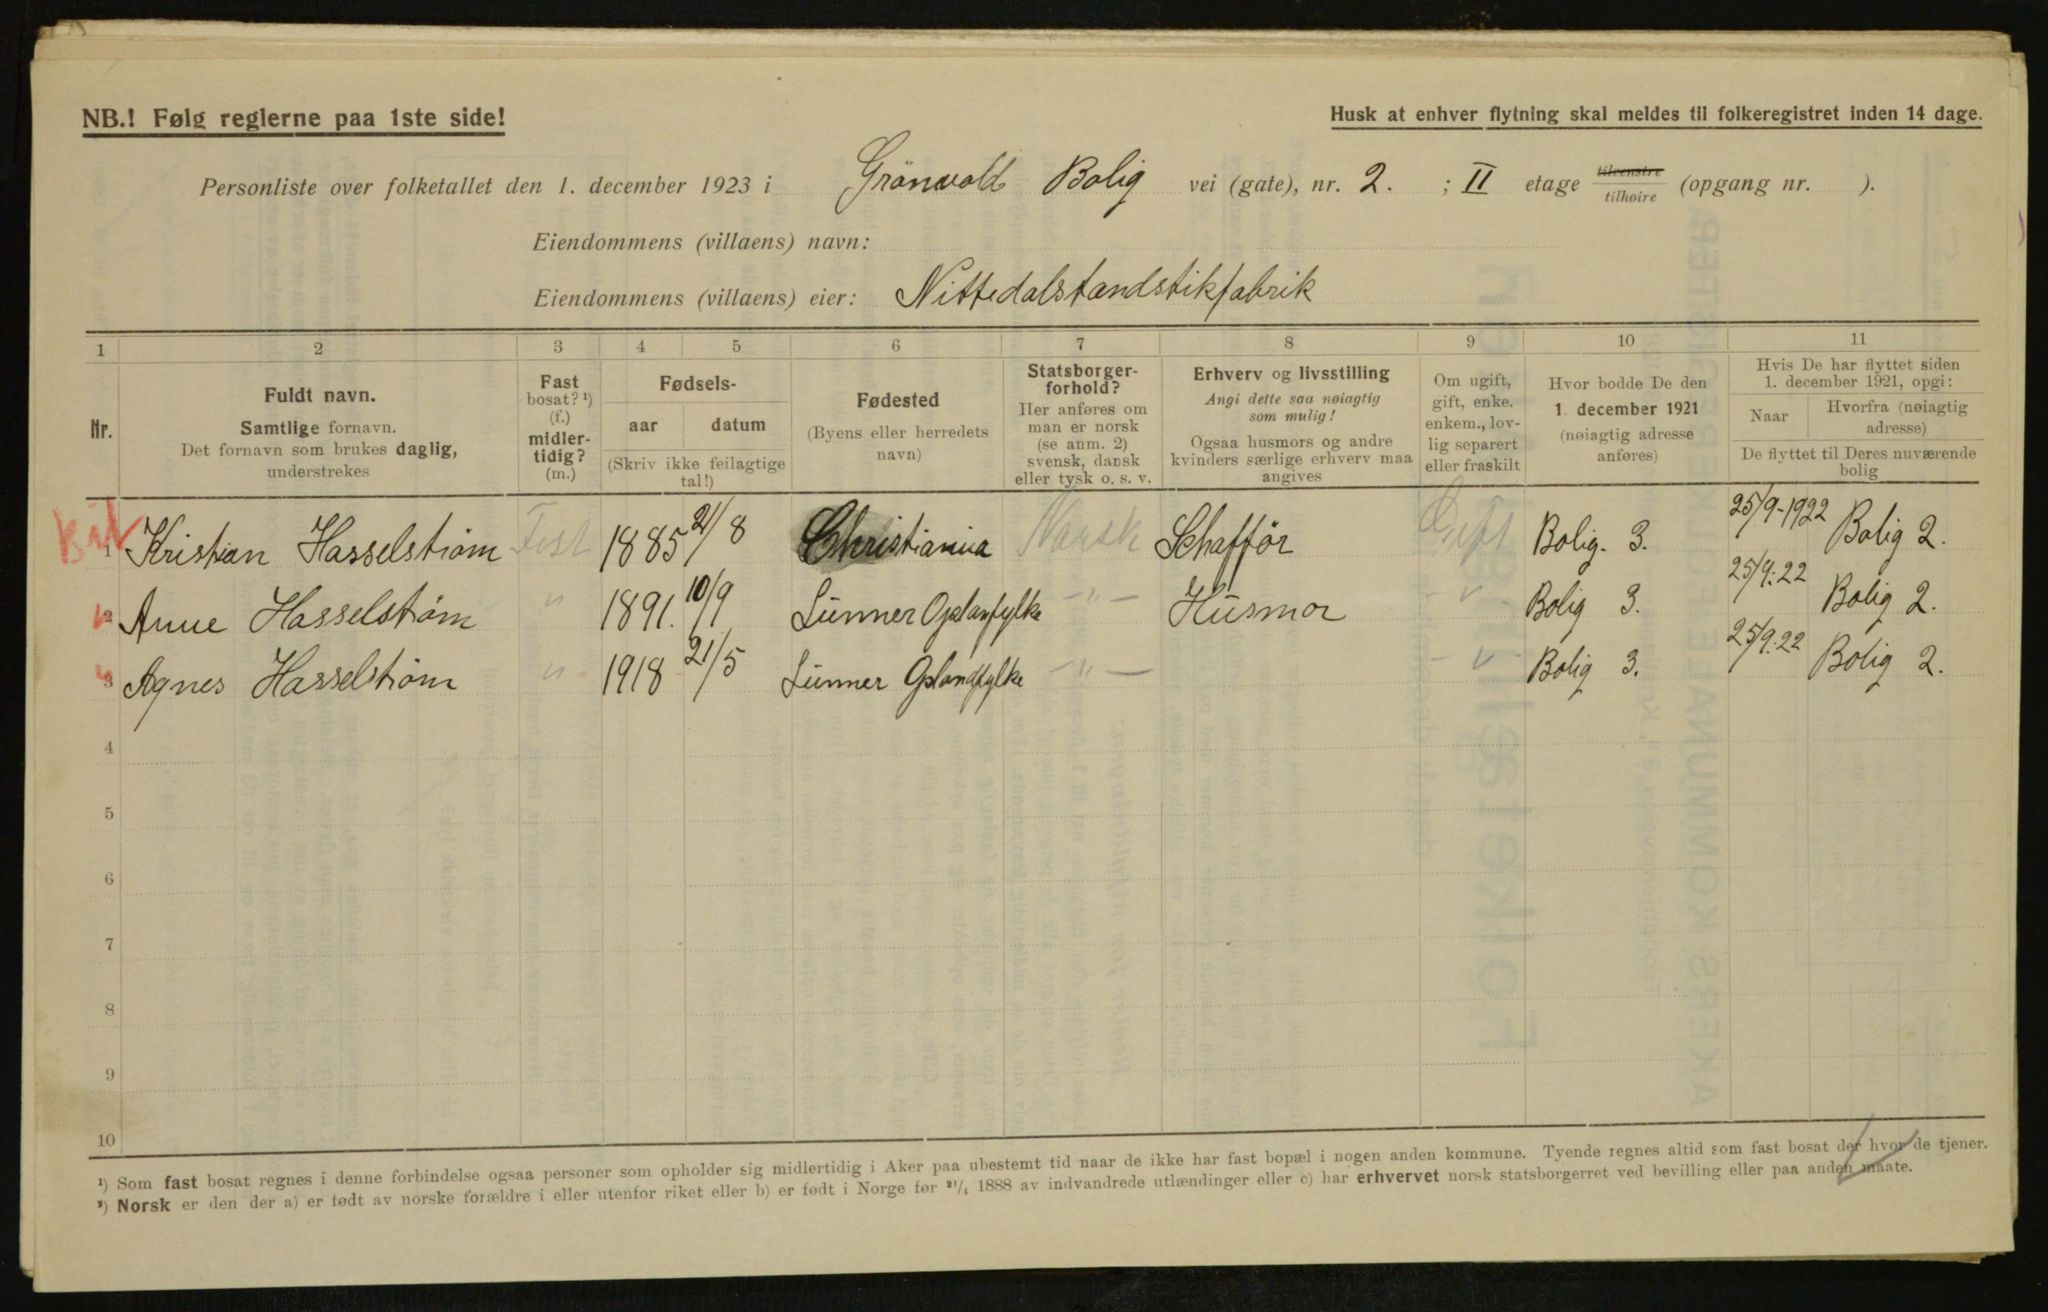 NB.! Følg reglerne paa 1ste side!
Husk at enhver flytning skal meldes til folkeregistret inden 14 dage.
Personliste over folketallet den 1. december 1923 i Grönvold Bolig vei (gate), nr. 2. ; II etage tilvenstre tilhøire (opgang nr. ).
Eiendommens (villaens) navn:
Eiendommens (villaens) eier: Nittedalstandstikfabrik
1 2 3 4 5 6 7 8 9 10 11
Nr.
Fuldt navn.
Samtlige fornavn.
Det fornavn som brukes daglig,
understrekes
Fast
bosat? ¹)
(f.)
midler-
tidig?
(m.)
Fødsels-
aar datum
(Skriv ikke feilagtige
tal!)
Fødested
(Byens eller herredets
navn)
Statsborger-
forhold?
Her anføres om
man er norsk
(se anm. 2)
svensk, dansk
eller tysk o. s. v.
Erhverv og livsstilling
Angi dette saa nøiagtig
som mulig!
Ogsaa husmors og andre
kvinders særlige erhverv maa
angives
Om ugift,
gift, enke.
enkem., lov-
lig separert
eller fraskilt
Hvor bodde De den
1. december 1921
(nøiagtig adresse
anføres)
Hvis De har flyttet siden
1. december 1921, opgi:
Naar Hvorfra (nøiagtig
adresse)
De flyttet til Deres nuværende
bolig
1 Kristian Hasselstrøm Fast 1885 21/8 Christiania Norsk Schafför Gift Bolig. 3. 25/9-1922 Bolig 2.
2 Anne Hasselstrøm " 1891. 10/9 Lunner Oplandfylke -"- Husmor -"- Bolig 3. 25/9.22 Bolig 2.
3 Agnes Hasselstrøm " 1918 21/5 Lunner Oplandfylke -"- -"- Bolig 3. 25/9.22 Bolig 2.
4
5
6
7
8
9
10
¹) Som fast bosat regnes i denne forbindelse ogsaa personer som opholder sig midlertidig i Aker paa ubestemt tid naar de ikke har fast bopæl i nogen anden kommune. Tyende regnes altid som fast bosat der hvor de tjener.
²) Norsk er den der a) er født av norske forældre i eller utenfor riket eller b) er født i Norge før ²¹/₄ 1888 av indvandrede utlændinger eller c) har erhvervet norsk statsborgerret ved bevilling eller paa anden maate.